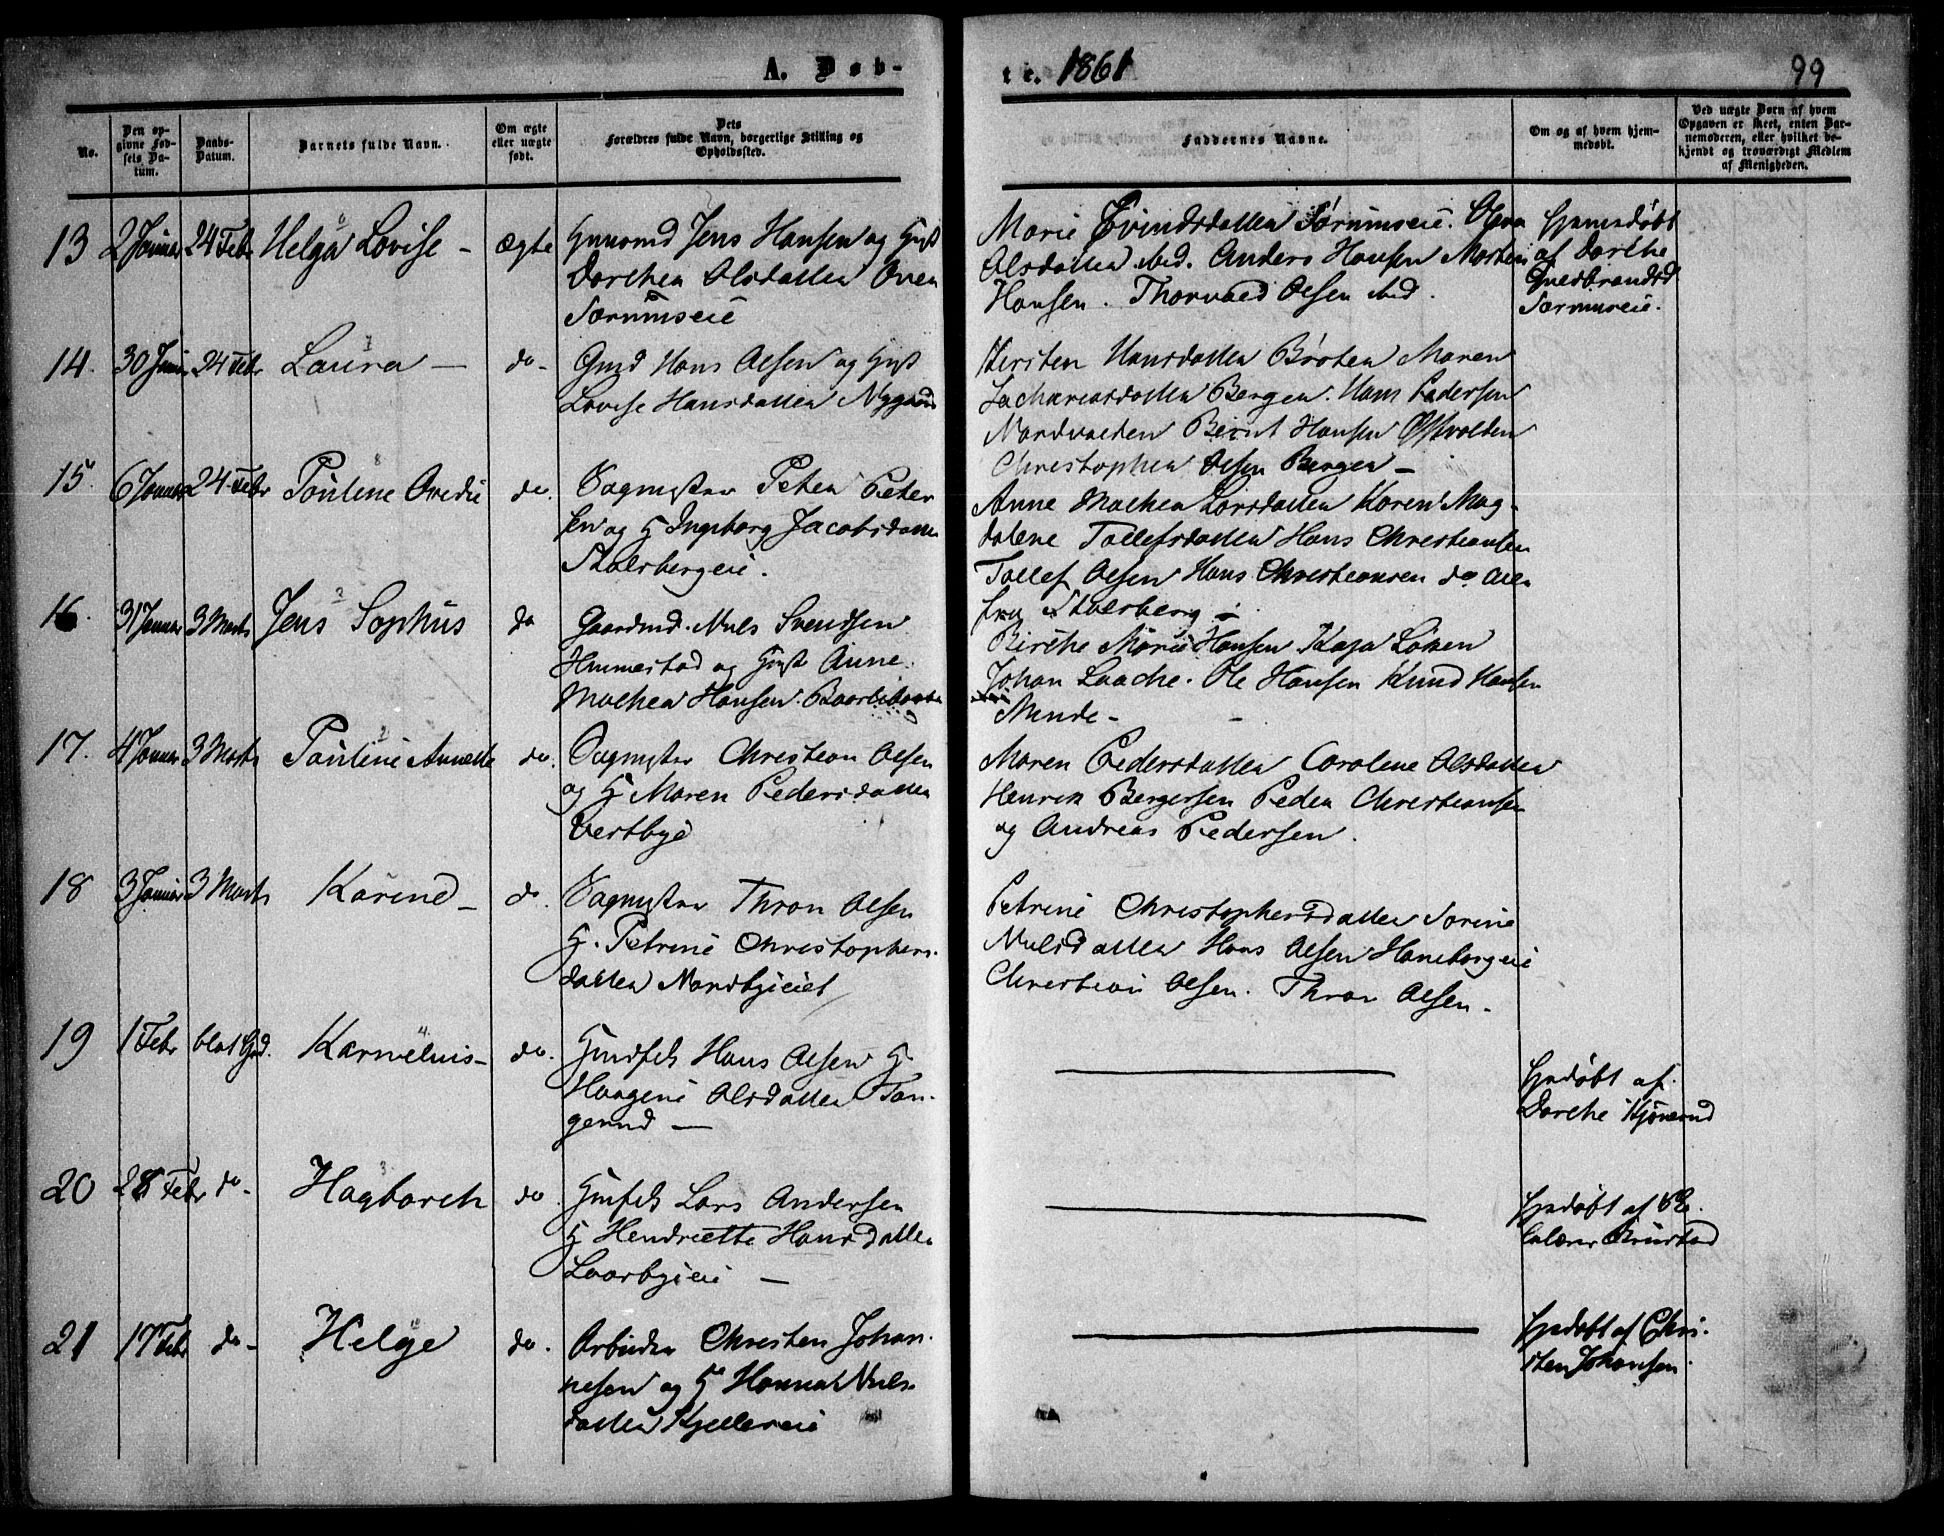 A. Døb-
te. 1861
99
No.
Den op-
givne Fød-
sels Da-
tum.
Daabs-
Datum.
Barnets fulde Navn.
Om ægte
eller uægte
født.
Dets
Forældres fulde Navn, borgerlige Stilling og
Opholdssted.
Faddernes Navne.
Om og af hvem hjem-
medøbt.
Ved uægte Børn af hvem
Opgaven er skeet, enten Bar-
nemoderen, eller hvilket be-
kjendt og troværdigt Medlem
af Menigheden.
13 2 Januar 24 Febr Helga Lovise - ægte
Jens Hansen og
Dorthea Olsdatter
Sørumseie
Marie Evindsdatter Sørumseie.
Olsdatter ibid. Anders Hansen
Hansen. Thorvald Olsen ibid.
Hjemedøbt
af Dorthe
Gulbrandsd
Sørumseie.
14. 30 24 Febr Laura - do-
Gmd Hans Olsen og
Lovise Hansdatter Nygaard
Kersten Hansdatter Broten Maren
Zachariasdatter Bergen. Hans Pedersen
Nordvolden Bernt Hansen Østvolden
Christopher Olsen Bergen -
15. 6 Januar 24 Febr Pauline Ovedie do.
Sagmester Peter Peter
sen og H Ingeborg Jacobsdatter
Stalsbergeie.
Anne Mathea Larsdatter Karen Mag-
dalene Tollefsdatter Hans Christiansen
Tollef Olsen Hans Christiansen do alle
fra Stalsberg
16. 31 Januar 3 Marts Jens Sophus do
Gaardmd. Nils Svendsen
Himmestad og Anne
Mathea Hansen.
Birthe Marie Hansen Kaja Løken
Johan Laache. Ole Hansen Knud Hansen
Minde -
17. 4 Januar 3 Marts Pauline Annette do.
Sagmester Christian Olsen
og H Maren Pedersdatter
Vestbye
Maren Pedersdatter Caroline Olsdatter
Henrik Bergersen Peder Christiansen
og Andreas Pedersen.
18 3 Januar 3 Marts Karine - do.
Sagmester Thron Olsen
H. Petrine Christophers-
datter Nordbyeiet
Petrine Christophersdatter Sorine
Nilsdatter Hans Olsen Haneborgeie
Christian Olsen. Thron Olsen.
19 1 Febr blot Gd. Karnelius - do.
Hans Olsen H
Haagene Olsdatter Tan-
gerud -
Hjdøbt af
Dorthe Kjønerud
20 28 Febr do- Hagbarth do.
Lars Andersen
H Hendriette Hansdatter
Laarbyeie -
Hjdøbt af
Brustad
21 17 Febr do- Helge do.
Arbeider Christen Johan-
nesen og H Hanna Nils-
datter Kjellereie
Hjdøbt af Chri-
sten Johansen.